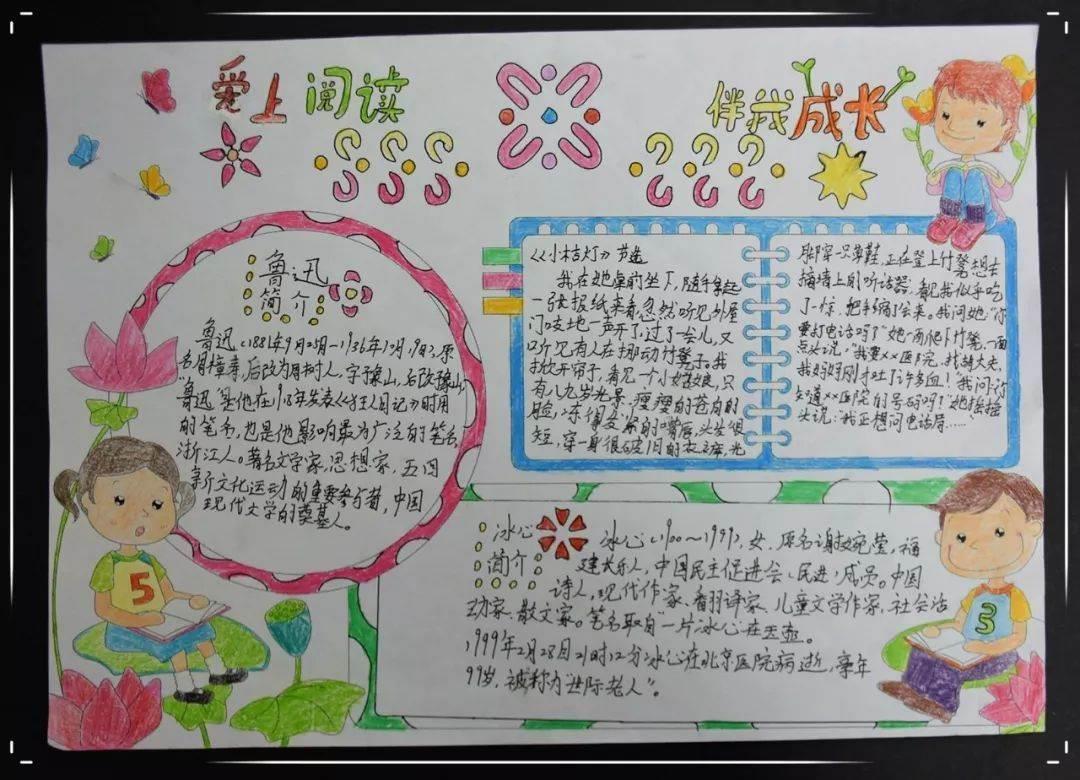 爱上阅读
伴我成长
鲁迅
简介
鲁迅(1881年9月25日-1936年10月19日),原
名周樟寿,后改为周树人,字豫山,后改豫山,
“鲁迅”是他在1918年发表《狂人日记》时用
的笔名,也是他影响最为广泛的笔名,
浙江人。著名文学家,思想家,五四
新文化运动的重要参与者,中国
现代文学的奠基人。
《小桔灯》节选
我在她桌前坐下,随手拿起
一张报纸来看,忽然听见外屋
门吱地一声开了,过了一会儿,又
听见有人在挪动竹凳子。我
掀开帘子,看见一个小姑娘,只
有八九岁光景,瘦瘦的苍白的
脸,冻得发紫的嘴唇,头发很
短,穿一身很破旧的衣裤,光
脚穿一只草鞋,正在登上竹凳想去
摘墙上的听话器,看见我似乎吃
了一惊,把手缩了回来。我问她:“你
要打电话吗?”她一面爬下竹凳,一面
点头说:“我要××医院,找胡大夫,
我妈妈刚才吐了许多血!”我问:“你
知道××医院的号码吗?”她摇摇
头说:“我正想问电话局……”
冰心
简介
冰心(1900~1999),女,原名谢婉莹,福
建长乐人,中国民主促进会(民进)成员。中国
诗人,现代作家、翻译家、儿童文学作家、社会活
动家、散文家。笔名取自一片冰心在玉壶。
1999年2月28日21时12分冰心在北京医院病逝,享年
99岁,被称为“世纪老人”。
5
3